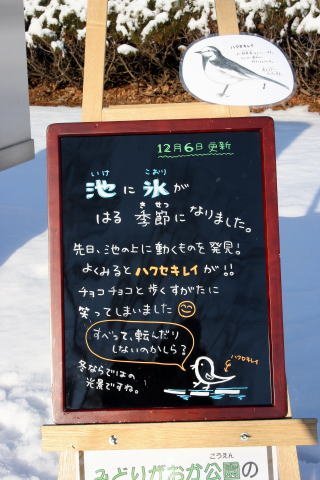 ハクセキレイ
12月6日 更新
いけ こおり
池に氷が
きせつ
はる 季節になりました。
先日、池の上に動くものを発見!
よくみるとハクセキレイが!!
チョコチョコと歩くすがたに
笑ってしまいました
すべって、転んだり
しないのかしら?
ハクセキレイ
冬ならではの
光景ですね。
こうえん
みどりがおか公園の